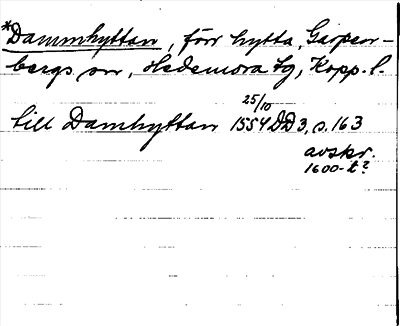 *Dammhyttan, förr hytta, Garpen-
bergs sn, Hedemora tg, Kopp. l.
till Damhyttan 25/10 1554 DD 3, s. 163
avskr.
1600-t?